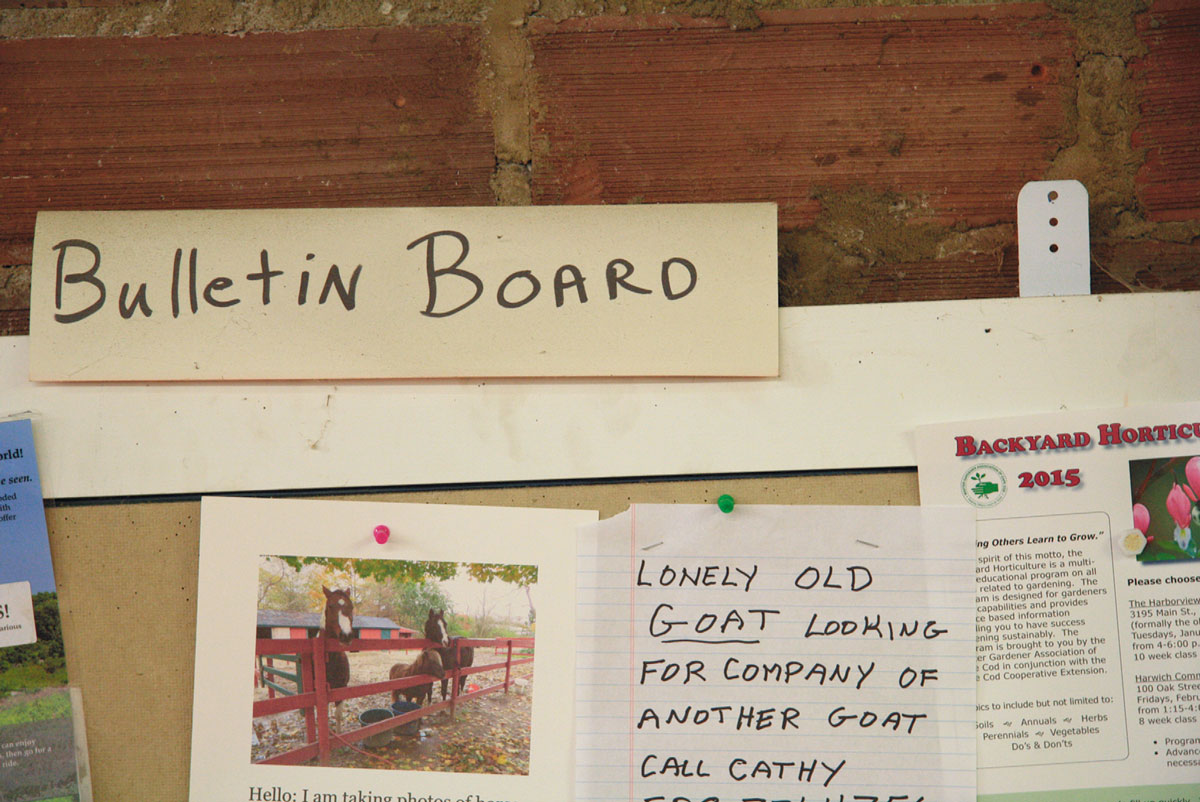 BulletiN BOARD
orld!
e seen.
ded
ith
offer
S!
various
can enjoy
, then go for a
ride.
Hello: I am taking photos of
LONELY OLD
GOAT LOOKING
FOR COMPANY OF
ANOTHER GOAT
CALL CATHY
BACKYARD HORTICU
2015
ng Others Learn to Grow."
spirit of this motto, the
ard Horticulture is a multi-
educational program on all
related to gardening. The
am is designed for gardeners
capabilities and provides
ce based information
ling you to have success
ening sustainably. The
ram is brought to you by the
er Gardener Association of
Cod in conjunction with the
Cod Cooperative Extension.
ics to include but not limited to:
Soils Annuals Herbs
Perennials Vegetables
Do's & Don'ts
Please choose
The Harborview
3195 Main St.,
(formally the o
Tuesdays, Janu
from 4-6:00 p.
10 week class
Harwich Comm
100 Oak Street
Fridays, Febru
from 1:15-4:
8 week class
• Program
• Advanc
necessa